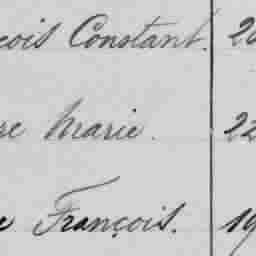 çois Constant. 20
re Marie. 22
e François. 19